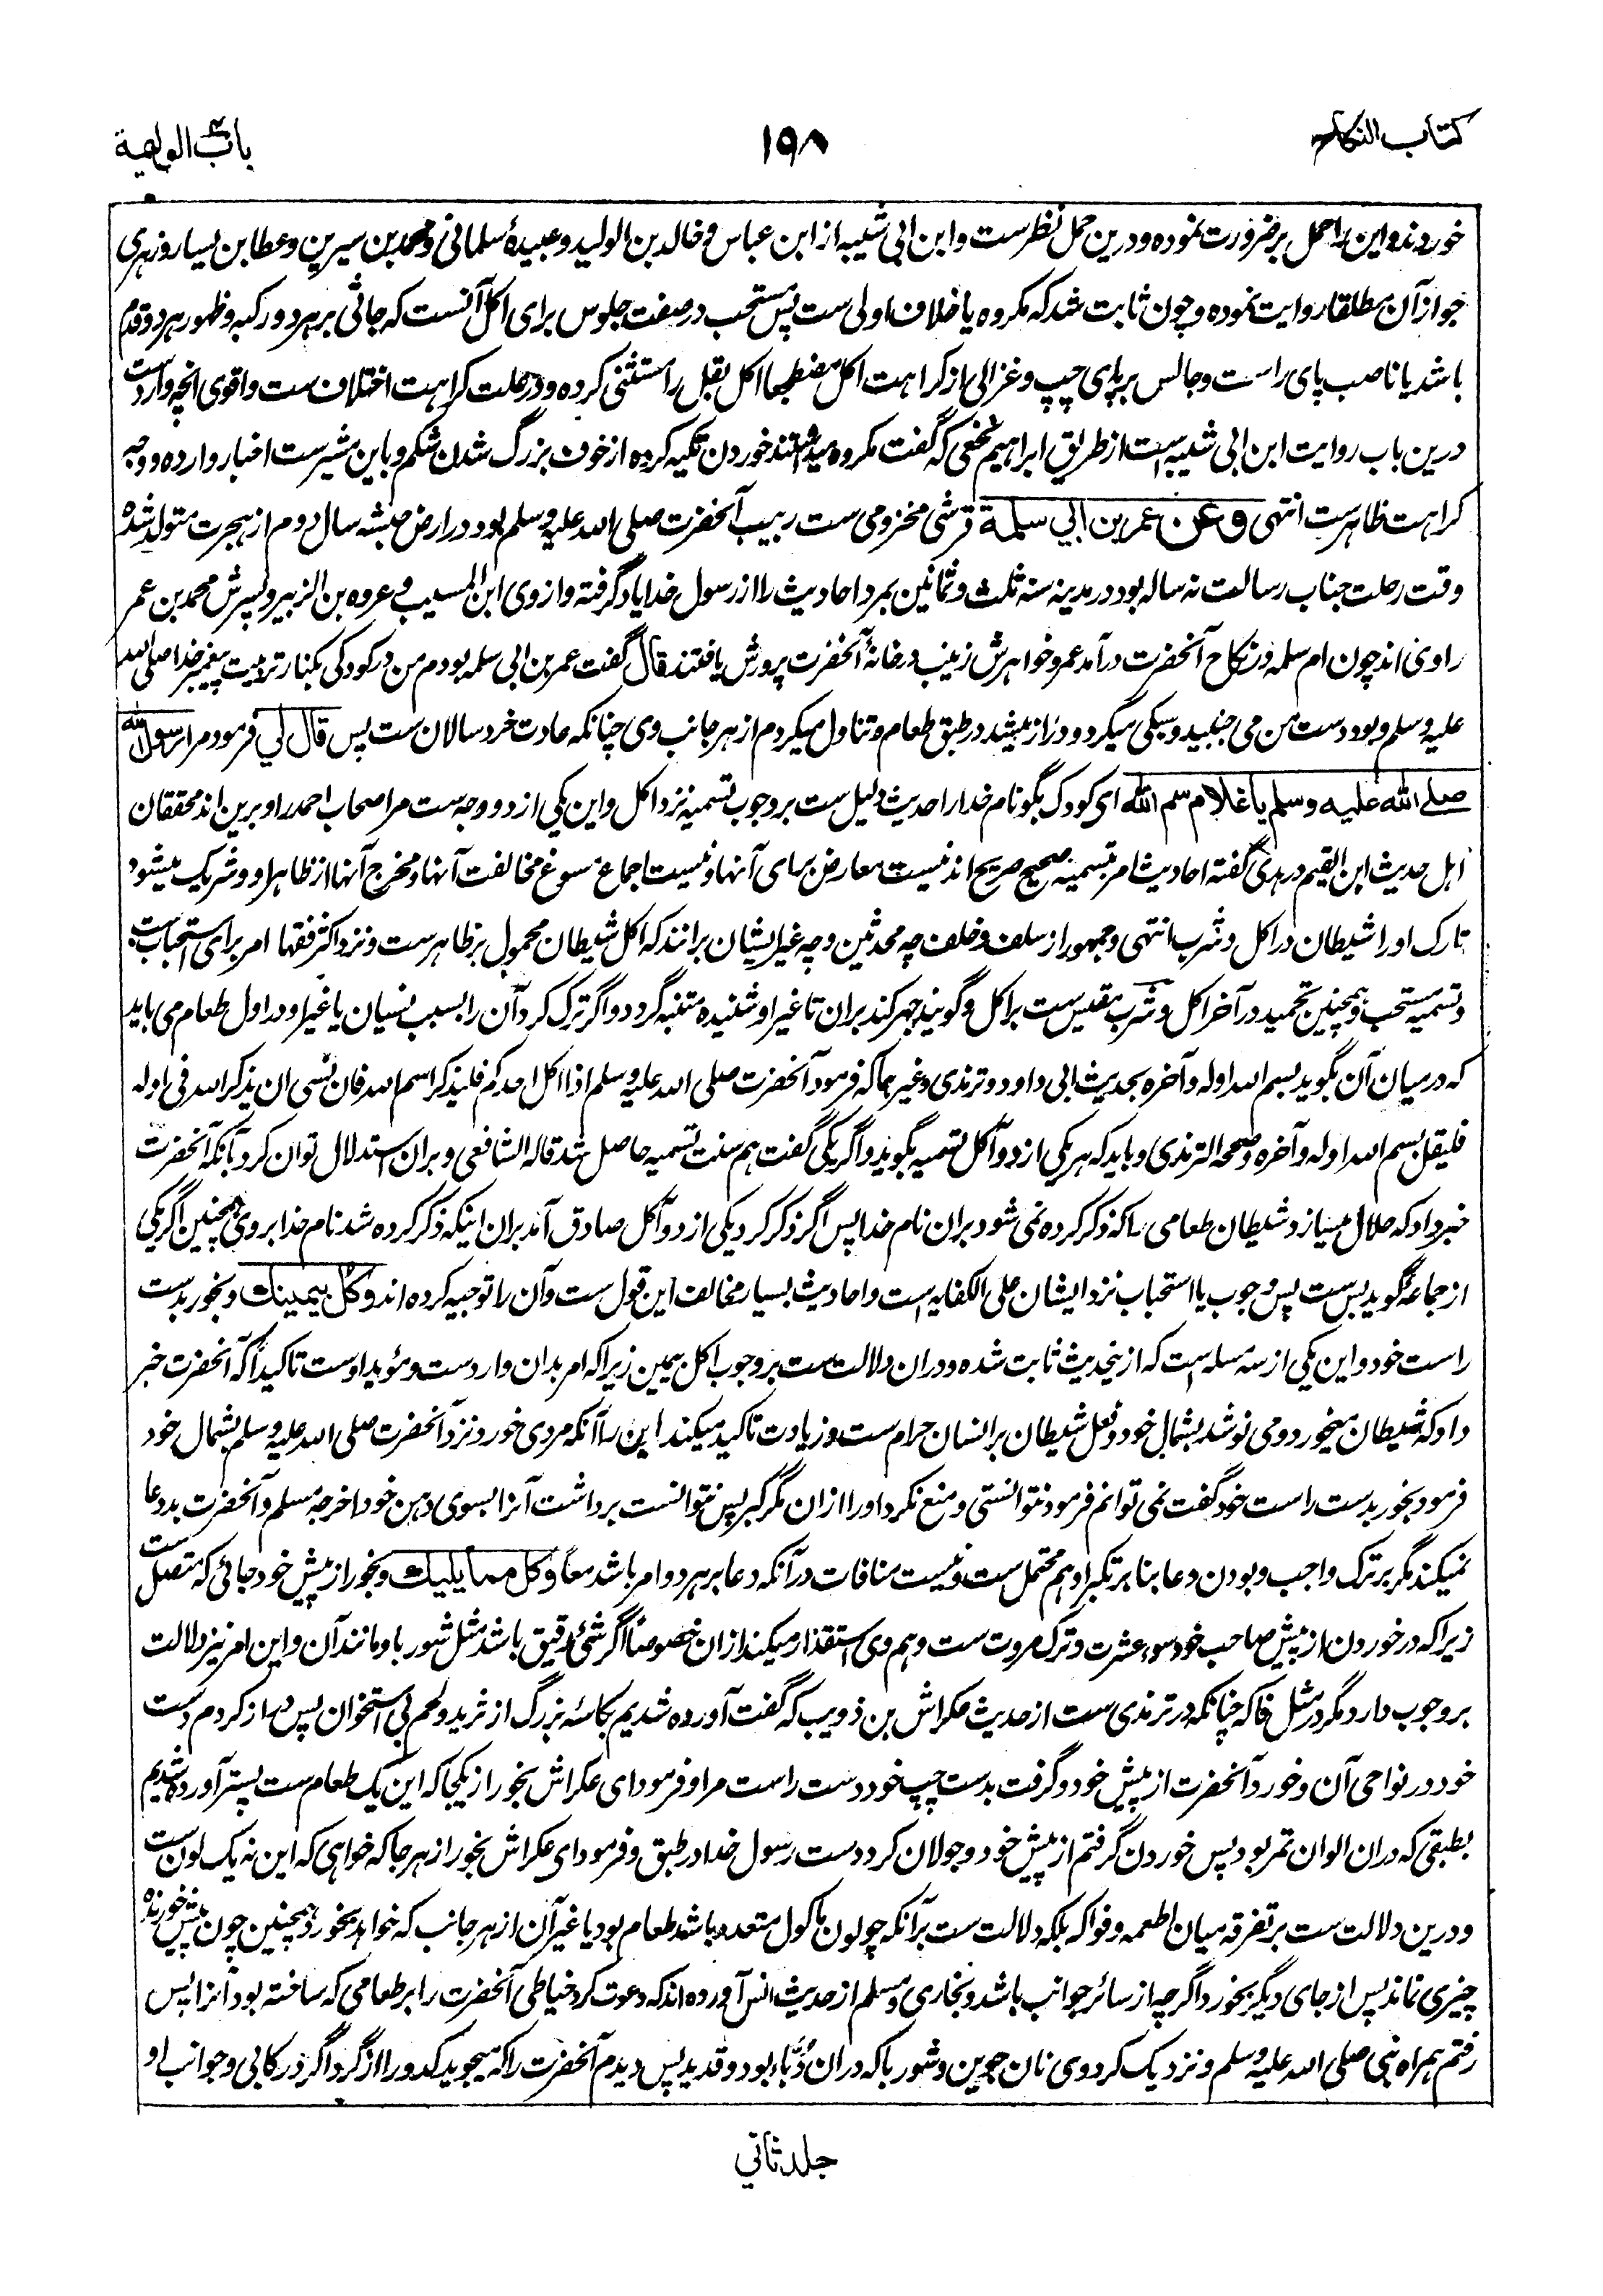 كتاب النكاح
١٩٨
باب الوليمة
خوردند و این را حمل بر ضرورت نموده و درین حمل نظرست و ابن ابی شیبه از ابن عباس و خالد بن الولید و عبیدۀ سلمانی و محمد بن سیرین و عطا بن یسار و زهری
جواز آن مطلقا روایت نموده و چون ثابت شد که مکروه یا خلاف اولی ست پس مستحب در صفت جلوس برای اکل آنست که جاثی بر هر دو رکبه و ظهور هر دو قدم
باشد یا ناصب پای راست و جالس بر پای چپ و غزالی از کراهت اکل مضطجعا اکل بقل را مستثنی کرده و در علت کراهت اختلاف ست و اقوی انچه واردست
درین باب روایت ابن ابی شیبه است از طریق ابراهیم نخعی که گفت مکروه میداشتند خوردن تکیه کرده از خوف بزرگ شدن شکم و باین مشیرست اخبار وارده و وجه
کراهت ظاهرست انتهی وعن عمر بن ابي سلمة قرشی مخزومی ست ربیب آنحضرت صلی الله علیه وسلم بود در ارض حبشه سال دوم از هجرت متولد شده
وقت رحلت جناب رسالت نه ساله بود در مدینه سنه ثلث و ثمانین بمرد احادیث را از رسول خدا یاد گرفته و از وی ابن المسیب و عروه بن الزبیر و پسرش محمد بن عمر
راوی اند چون ام سلمه در نکاح آنحضرت درآمد عمر و خواهرش زینب در خانۀ آنحضرت پرورش یافتند قال گفت عمر بن ابی سلمه بودم من در کودکی بکنار تربیت پیغمبر خدا صلی الله
علیه وسلم و بود دست من می جنبید و سبکی میکرد و دراز میشد در طبق طعام و تناول میکردم از هر جانب وی چنانکه عادت خرد سالان ست پس قال لي فرمود مرا رسول الله
صلی الله علیه وسلم یا غلام سم الله ای کودک بگو نام خدا را حدیث دلیل ست بر وجوب تسمیه نزد اکل و این یکی از دو وجه ست مر اصحاب احمد را و برین اند محققان
اهل حدیث ابن القیم در هدی گفته احادیث امر بتسمیه صحیح صریح اند نیست معارض برای آنها و نیست اجماع مسوغ مخالفت آنها و مخرج آنها از ظاهر او و شریک میشود
تارک او را شیطان در اکل و شرب انتهی و جمهور از سلف و خلف چه محدثین و چه غیر ایشان برانند که اکل شیطان محمول بر ظاهرست و نزد اکثر فقها امر برای استحباب ست
و تسمیه مستحب و همچنین تحمید در آخر اکل و شرب مقیس ست بر اکل و گویند جهر کند بران تا غیر او شنیده متنبه گردد و اگر ترک کرد آن را بسبب نسیان یا غیر او در اول طعام می باید
که در میان آن بگوید بسم الله اوله و آخره بحدیث ابی داود و ترمذی و غیرهما که فرمود آنحضرت صلی الله علیه وسلم اذا اکل احدکم فلیذکر اسم الله فان نسی ان یذکر الله فی اوله
فلیقل بسم الله اوله و آخره و صححه الترمذی و باید که هر یکی از دو آکل تسمیه بگوید و اگر یکی گفت هم سنت تسمیه حاصل شد قاله الشافعی و بران استدلال توان کرد بآنکه آنحضرت
خبر داد که حلال میسازد شیطان طعامی را که ذکر کرده نمی شود بران نام خدا پس اگر ذکر کرد یکی از دو آکل صادق آمد بران اینکه ذکر کرده شد نام خدا بر وی و همچنین اگر یکی
از جماعه گوید بس ست پس وجوب یا استحباب نزد ایشان علی الکفایه است و احادیث بسیار مخالف این قول ست و آن را توجیه کرده اند وكل بيمينك و بخور بدست
راست خود و این یکی از سه مسله است که ازینحدیث ثابت شده و دران دلالت ست بر وجوب اکل بیمین زیرا که امر بدان وارد ست و مؤید اوست تاکیداً آنکه آنحضرت خبر
داد که شیطان میخورد و می نوشد بشمال خود و فعل شیطان بر انسان حرام ست و زیادت تاکید میکند این را آنکه مردی خورد نزد آنحضرت صلی الله علیه وسلم بشمال خود
فرمود بخور بدست راست خود گفت نمی توانم فرمود نتوانستی و منع نکرد او را ازان مگر کبر پس نتوانست برداشت آنرا بسوی دهن خود اخرجه مسلم و آنحضرت بددعا
نمیکند مگر بر ترک واجب و بودن دعا بنا بر تکبر او هم محتمل ست و نیست منافات درآنکه دعا بر هر دو امر باشد معاً وكل مما يليك و بخور از پیش خود جائی که متصل ست
زیرا که در خوردن از پیش صاحب خود سوء عشرت و ترک مروت ست و هم وی استقذار میکند ازان خصوصاً اگر شئی رقیق باشد مثل شوربا و مانند آن و این امر نیز دلالت
بر وجوب دارد مگر در مثل فاکه چنانکه در ترمذی ست از حدیث عکراش بن ذویب که گفت آورده شدیم بکاسۀ بزرگ از ثرید و لحم بی استخوان پس دراز کردم دست
خود در نواحی آن و خورد آنحضرت از پیش خود و گرفت بدست چپ خود دست راست مرا و فرمود ای عکراش بخور از یکجا که این یک طعام ست پستر آورده شدیم
بطبقی که دران الوان تمر بود پس خوردن گرفتم از پیش خود و جولان کرد دست رسول خدا در طبق و فرمود ای عکراش بخور از هر جا که خواهی که این نه یک لون ست
و درین دلالت ست بر تفرقه میان اطعمه و فواکه بلکه دلالت ست برآنکه چو لون ماکول متعدد باشد طعام بود یا غیر آن از هر جانب که خواهد بخورد و همچنین چون پیش خورنده
چیزی نماند پس از جای دیگر بخورد اگرچه از سائر جوانب باشد و بخاری و مسلم از حدیث انس آورده اند که دعوت کرد خیاطی آنحضرت را بر طعامی که ساخته بود آنرا پس
رفتم همراه نبی صلی الله علیه وسلم و نزدیک کرد وی نان جوین و شوربا که دران دُبّاء بود و قدید پس دیدم آنحضرت را که میجوید کدو را از گرداگرد رکابی و جوانب او
جلد ثاني